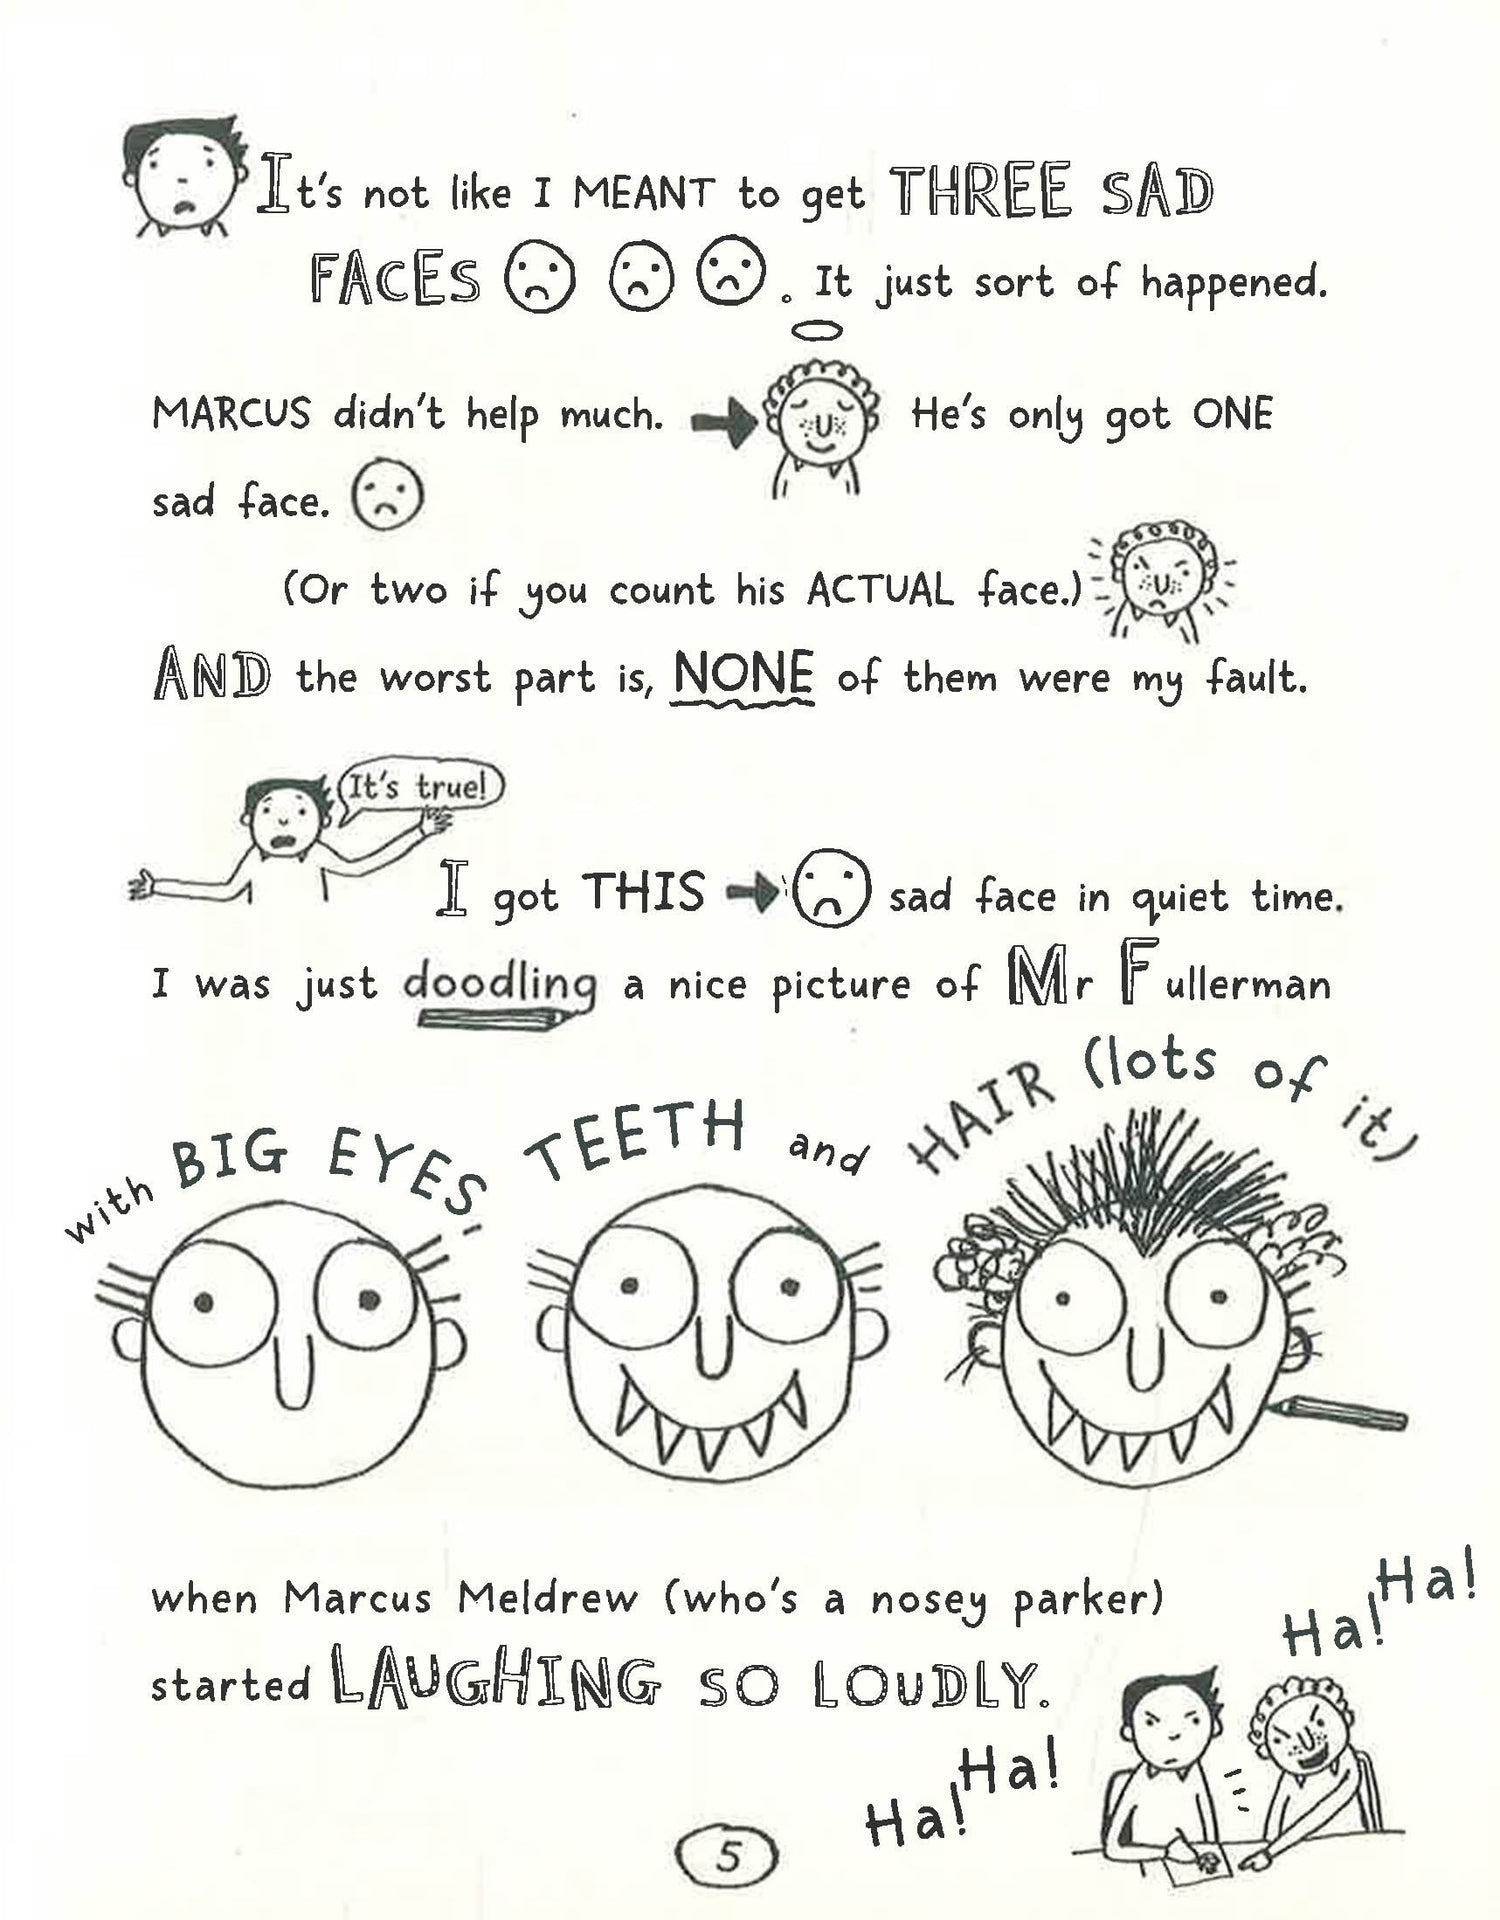 It's not like I MEANT to get THREE SAD
FACES . It just sort of happened.
MARCUS didn't help much. He's only got ONE
sad face.
(Or two if you count his ACTUAL face.)
AND the worst part is, NONE of them were my fault.
It's true!
I got THIS sad face in quiet time.
I was just doodling a nice picture of Mr Fullerman
with BIG EYES TEETH and HAIR (lots of it)
when Marcus Meldrew (who's a nosey parker)
started LAUGHING SO LOUDLY.
Ha! Ha!
Ha! Ha!
5